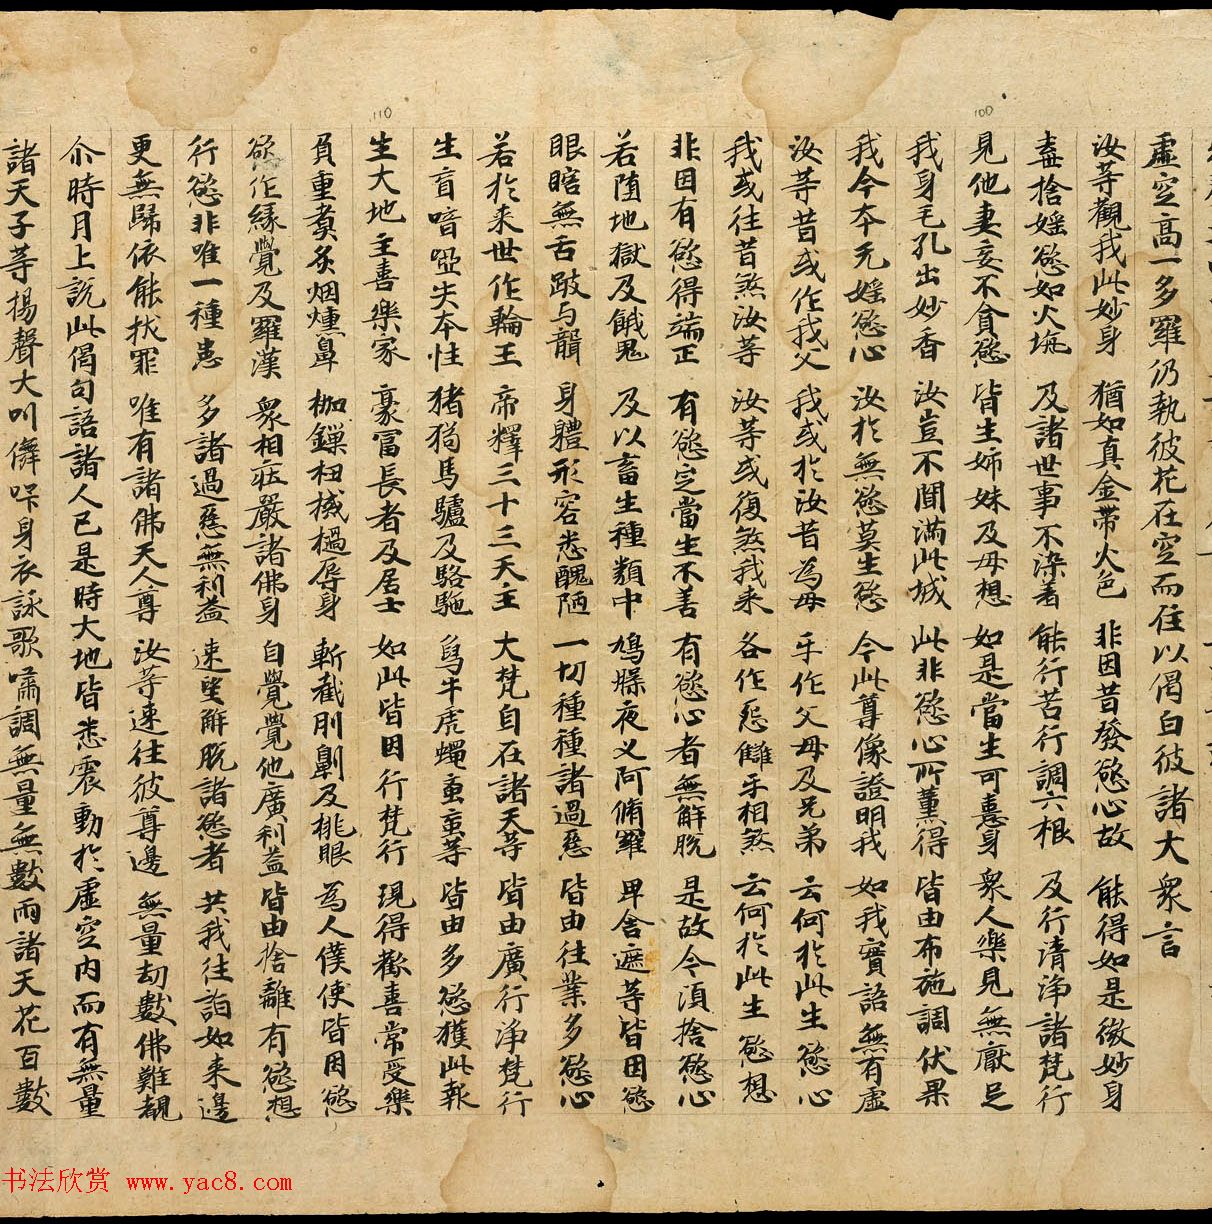 虛空高一多羅仍執彼花在空而住以偈白彼諸大衆言
汝等觀我此妙身 猶如真金帶火色 非因昔發慾心故 能得如是微妙身
盡捨婬慾如火坑 及諸世事不染著 能行苦行調六根 及行清淨諸梵行
見他妻妾不貪慾 皆生姊妹及母想 如是當生可憙身 衆人樂見無猒足
我身毛孔出妙香 汝豈不聞滿此城 此非慾心所薰得 皆由布施調伏果
我今本无婬慾心 汝於無慾莫生慾 今此尊像證明我 如我實語無有虛
汝等昔或作我父 我或於汝昔為母 乎作父母及兄弟 云何於此生慾心
我或往昔煞汝等 汝等或復煞我来 各作惡讎乎相煞 云何於此生慾想
非因有慾得端正 有慾定當生不善 有慾心者無解脫 是故今須捨慾心
若墮地獄及餓鬼 及以畜生種類中 鳩槃夜叉阿脩羅 卑舍遮等皆因慾
眼瞎無舌跛与聾 身體形容悉醜陋 一切種種諸過惡 皆由往業多慾心
若於来世作輪王 帝釋三十三天主 大梵自在諸天等 皆由廣行淨梵行
生盲喑啞失本性 猪狗馬驢及駱駞 鳥牛虎蠅重重等 皆由多慾獲此報
生大地主善樂家 豪富長者及居士 如此皆因行梵行 現得歡喜常受樂
負重煮炙烟燻鼻 枷鏁杻械檛辱身 斬截刖劓及桃眼 為人僕使皆因慾
慾作緣覺及羅漢 衆相莊嚴諸佛身 自覺覺他廣利益 皆由捨離有慾想
行慾非唯一種患 多諸過惡無利益 速望解脫諸慾者 共我往詣如来邊
更無歸依能拔罪 唯有諸佛天人尊 汝等速往彼尊邊 無量劫數佛難覩
尒時月上說此偈句語諸人已是時大地皆悉震動於虛空內而有無量
諸天子等揚聲大叫儛 身衣詠歌嘯調無量無數雨諸天花百數
110
100
书法欣赏 www.yac8.com